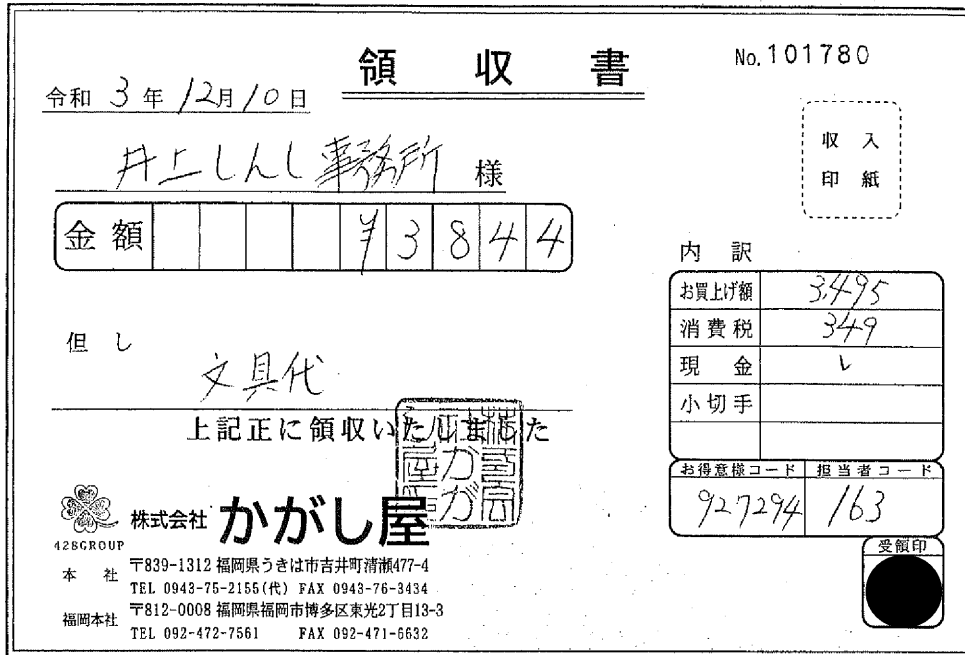 領収書
No.101780
令和 3年 12月10日
収入
印紙
井上しんじ事務所 様
金額 ¥3844
内訳
お買上げ額 3,495
消費税 349
現金 レ
小切手
但し
文具代
上記正に領収いたしました
お得意様コード 担当者コード
927294 163
受領印
428GROUP
株式会社 かがし屋
本社 〒839-1312 福岡県うきは市吉井町清瀬477-4
TEL 0943-75-2155(代) FAX 0943-76-3434
福岡本社 〒812-0008 福岡県福岡市博多区東光2丁目13-3
TEL 092-472-7561 FAX 092-471-6632